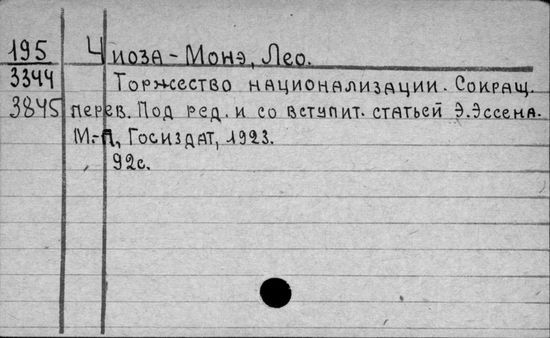 195 Чиоза-Монэ, Лео.
3344 Торжество национализации. Сокращ.
3845 перев. Под ред. и со вступит. статьей Э.Эссена.
М.-Л, Госиздат, 1923.
92с.